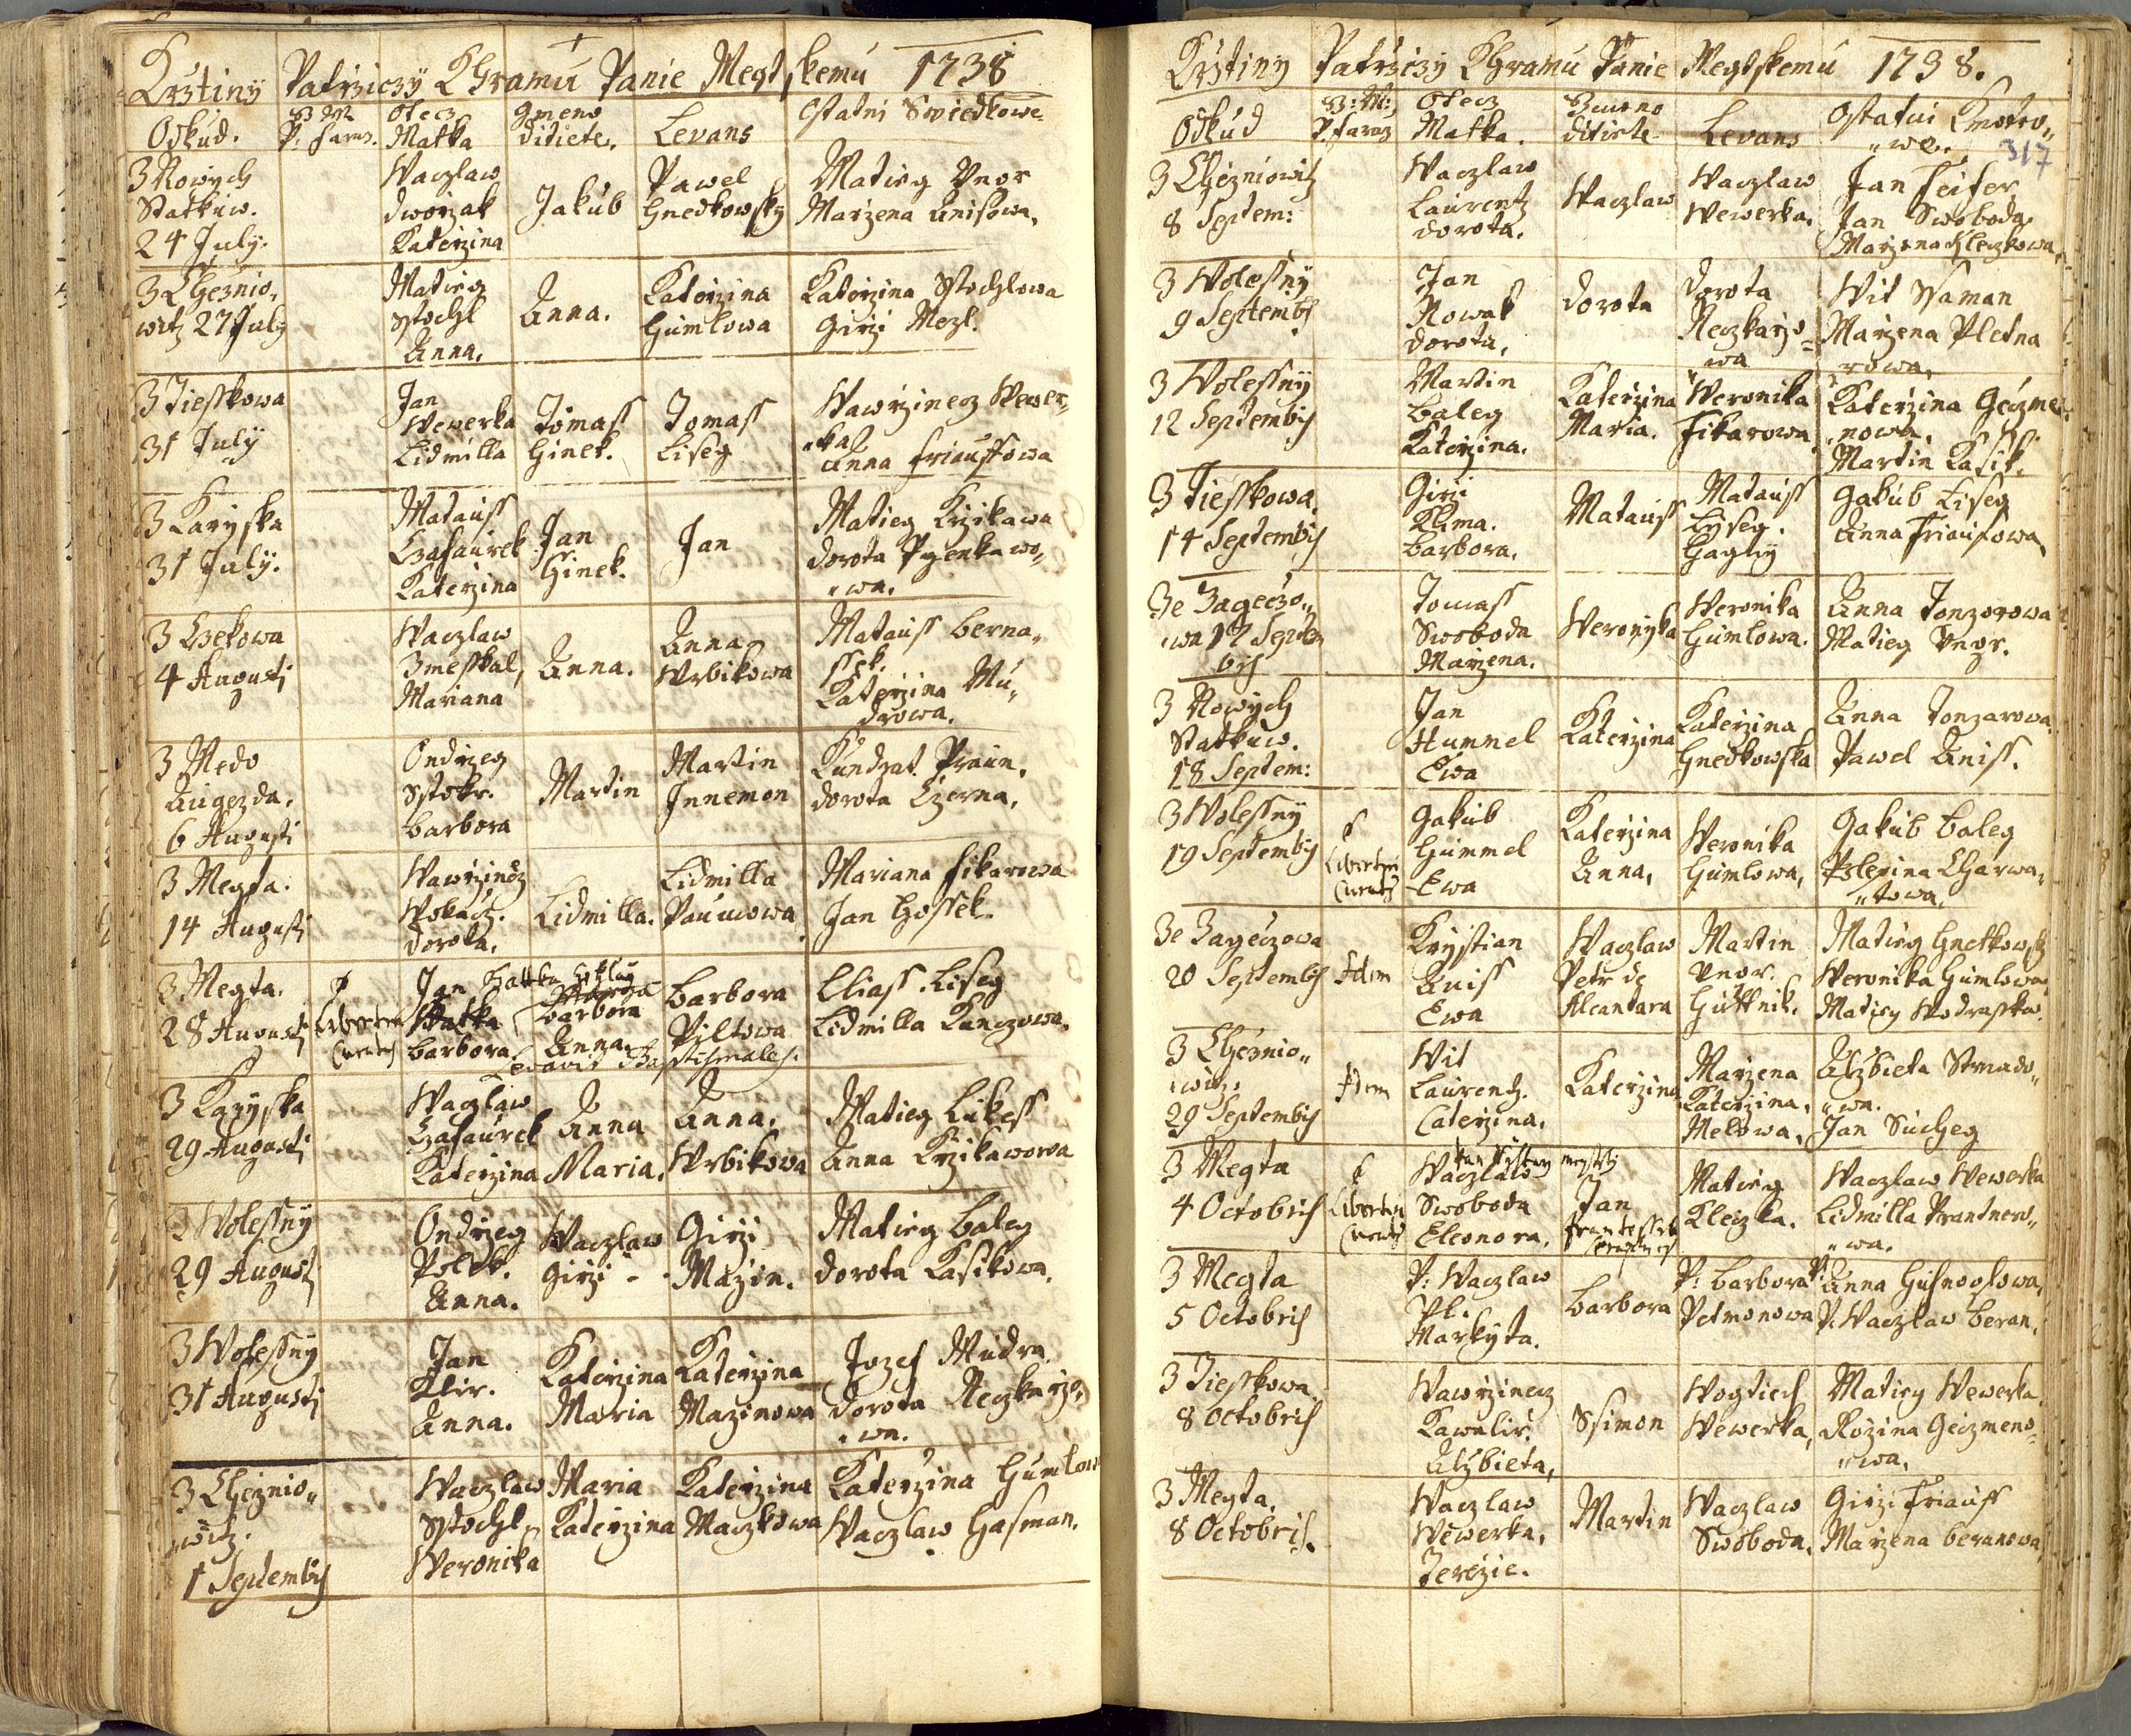 Krztiny Patrziczy KChramu Panie Megtskemu 1738
Odkud.
P: Faraz.
Otecz
Matka
Gmeno
ditiete.
Levans
Ostatni Swiedkowe
Z Nowych
Statkuw.
24 July.
Waczlaw
Dworzak
Katerzina
Jakub
Pawel
Gnedkowsky
Matieg Vnor
Marzena Anisowa,
Z Choznio„
witz 27 July
Matieg
Stochl
Anna,
Anna.
Katerzina
Gumlowa
Katerzina Stochlowa
Girzi Mozl.
Z Tiesskowa
31 July
Jan
Wewerka
Lidmilla
Tomass
Ginek.
Tomass
Liseg
Wawrzinecz Wewer„
„ka
Anna Friaussowa
Z Karyska
31 July.
Matauss
Czasaurek
Katerzina
Jan
Ginek.
Jan
Matieg Krzikawa
Dorota
„wa.
Z Czekowa
4 Augusti
Waczlaw
Zmesskal,
Mariana
Anna.
Anna
Wrbikowa
Matauss Berna„
ssek.
Katerzina Mu„
drowa.
Z Medo
Augezda,
6 Augusti
Ondrzeg
Stokr.
Barbora
Martin
Martin
Innemon
Kundrat Praun,
Dorota Czerna,
Z Megta.
14 Augusti
Wawrzinecz
Wokacz.
Dorota,
Lidmilla.
Lidmilla
Paumowa
Mariana Fikarowa
Jan Hossek.
Z Megta.
28 Augusti
Jan
Watka
Barbora
Barbora
Anna.
Barbora
Piltowa
Eliass Liseg
Lidmilla Kunczowa,
Z Karyska
29 Augusti
Waczlaw
Czasaurek
Katerzina
Anna
Maria,
Anna,
Wrbikowa
Matieg Lukess
Anna Krzikawowa
Z Wolessny
29 Augusti
Ondrzeg
Polak.
Anna.
Waczlaw
Girzi -
Girzi
Mazin.
Matieg Baleg
Dorota Kasikowa,
Z Wolessny
31 Augusti
Jan
Klir.
Anna.
Katerzina
Maria
Katerzina
Mazinowa
Jozef Mudra
Dorota Reczkarzo„
„wa.
Z Choznio„
„witz.
1 Septembris
Waczlaw
Stochl,
Weronika
Maria
Katerzina
Katerzina
Maczkowa
Katerzina Gumlow
Waczlaw Gasman.
Krztiny Patrziczy KChramu Panie Megtskemu 1738.
317
Odkud
P. Faraz
Otecz
Matka.
Gmeno
ditiete
Levans
Ostatni Kmotro„
„we.
Z Chozniowitz
8 Septem:
Waczlaw
Laurentz
Dorota.
Waczlaw
Waczlaw
Wewerka.
Jan Feifer
Jan Swoboda
Marzena Kleczkowa,
Z Wolessny
9 Septembris
Jan
Nowak
Dorota,
Dorota
Dorota
Reczkarzo„
„wa
Wit Saman
Marzena Pletna
rowa,
Z Wolessny
12 Septembris
Martin
Baleg
Katerzina.
Katerzina
Maria.
Weronika
Fikarowa
Katerzina Geczme
nowa,
Martin Kasik.
Z Tiesskowa
14 Septembris
Girzi
Klima.
Barbora,
Matauss
Matauss
Lyseg.
Gagny
Gakub Liseg
Anna Friausowa,
Ze Zageczo„
„wa 17 Septem
bris
Tomass
Swoboda
Marzena.
Weronyka
Weronika
Gumlowa.
Anna Tonzorowa
Matieg Vnor.
Z Nowych
Statkuw.
18 Septem:
Jan
Hummel
Ewa
Katerzina
Katerzina
Gnedkowska
Anna Tonzarowa
Pawel Aniss.
Z Wolessny
19 Septembris
Gakub
Gummel
Ewa
Katerzina
Anna,
Weronika
Gumlowa,
Gakub Baleg
Charwa„
„towa,
Ze Zageczowa
20 Septembris
Idem
Krystian
Aniss
Ewa
Waczlaw
Petr de
Alcantara
Martin
Vnor.
Guttnik.
Matieg Gnetkowsky
Weronika Gumlowa,
Matieg Wodraska.
Z Choznio„
„witz.
29 Septembris
Idem
Wit
Laurentz.
Caterzina,
Katerzina
Marzena
Katerzina,
Melowa,
Alzbieta Strnado„
„wa.
Jan Sucheg
Z Megta
4 Octobris
Waczlaw
Swoboda
Eleonora.
Jan
Matieg
Kleczka.
Waczlaw Wewerka
Lidmilla Prantnero„
„wa.
Z Megta
5 Octobris
P: Waczlaw
Pl.
Markyta.
Barbora
P: Barbora
Petmonowa
P: Anna Gusnoglowa,
P. Waczlaw Beran.
Z Tiesskowa
8 Octobris
Wawrzinecz
Kawalir.
Alzbieta,
Ssimon
Wogtiech
Wewerka,
Matieg Wewerka
Rozina Geczmeno„
„wa,
Z Megta.
8 Octobris.
Waczlaw
Wewerka,
Terezie.
Martin
Waczlaw
Swoboda,
Girzi Friauss
Marzena Beranowa,